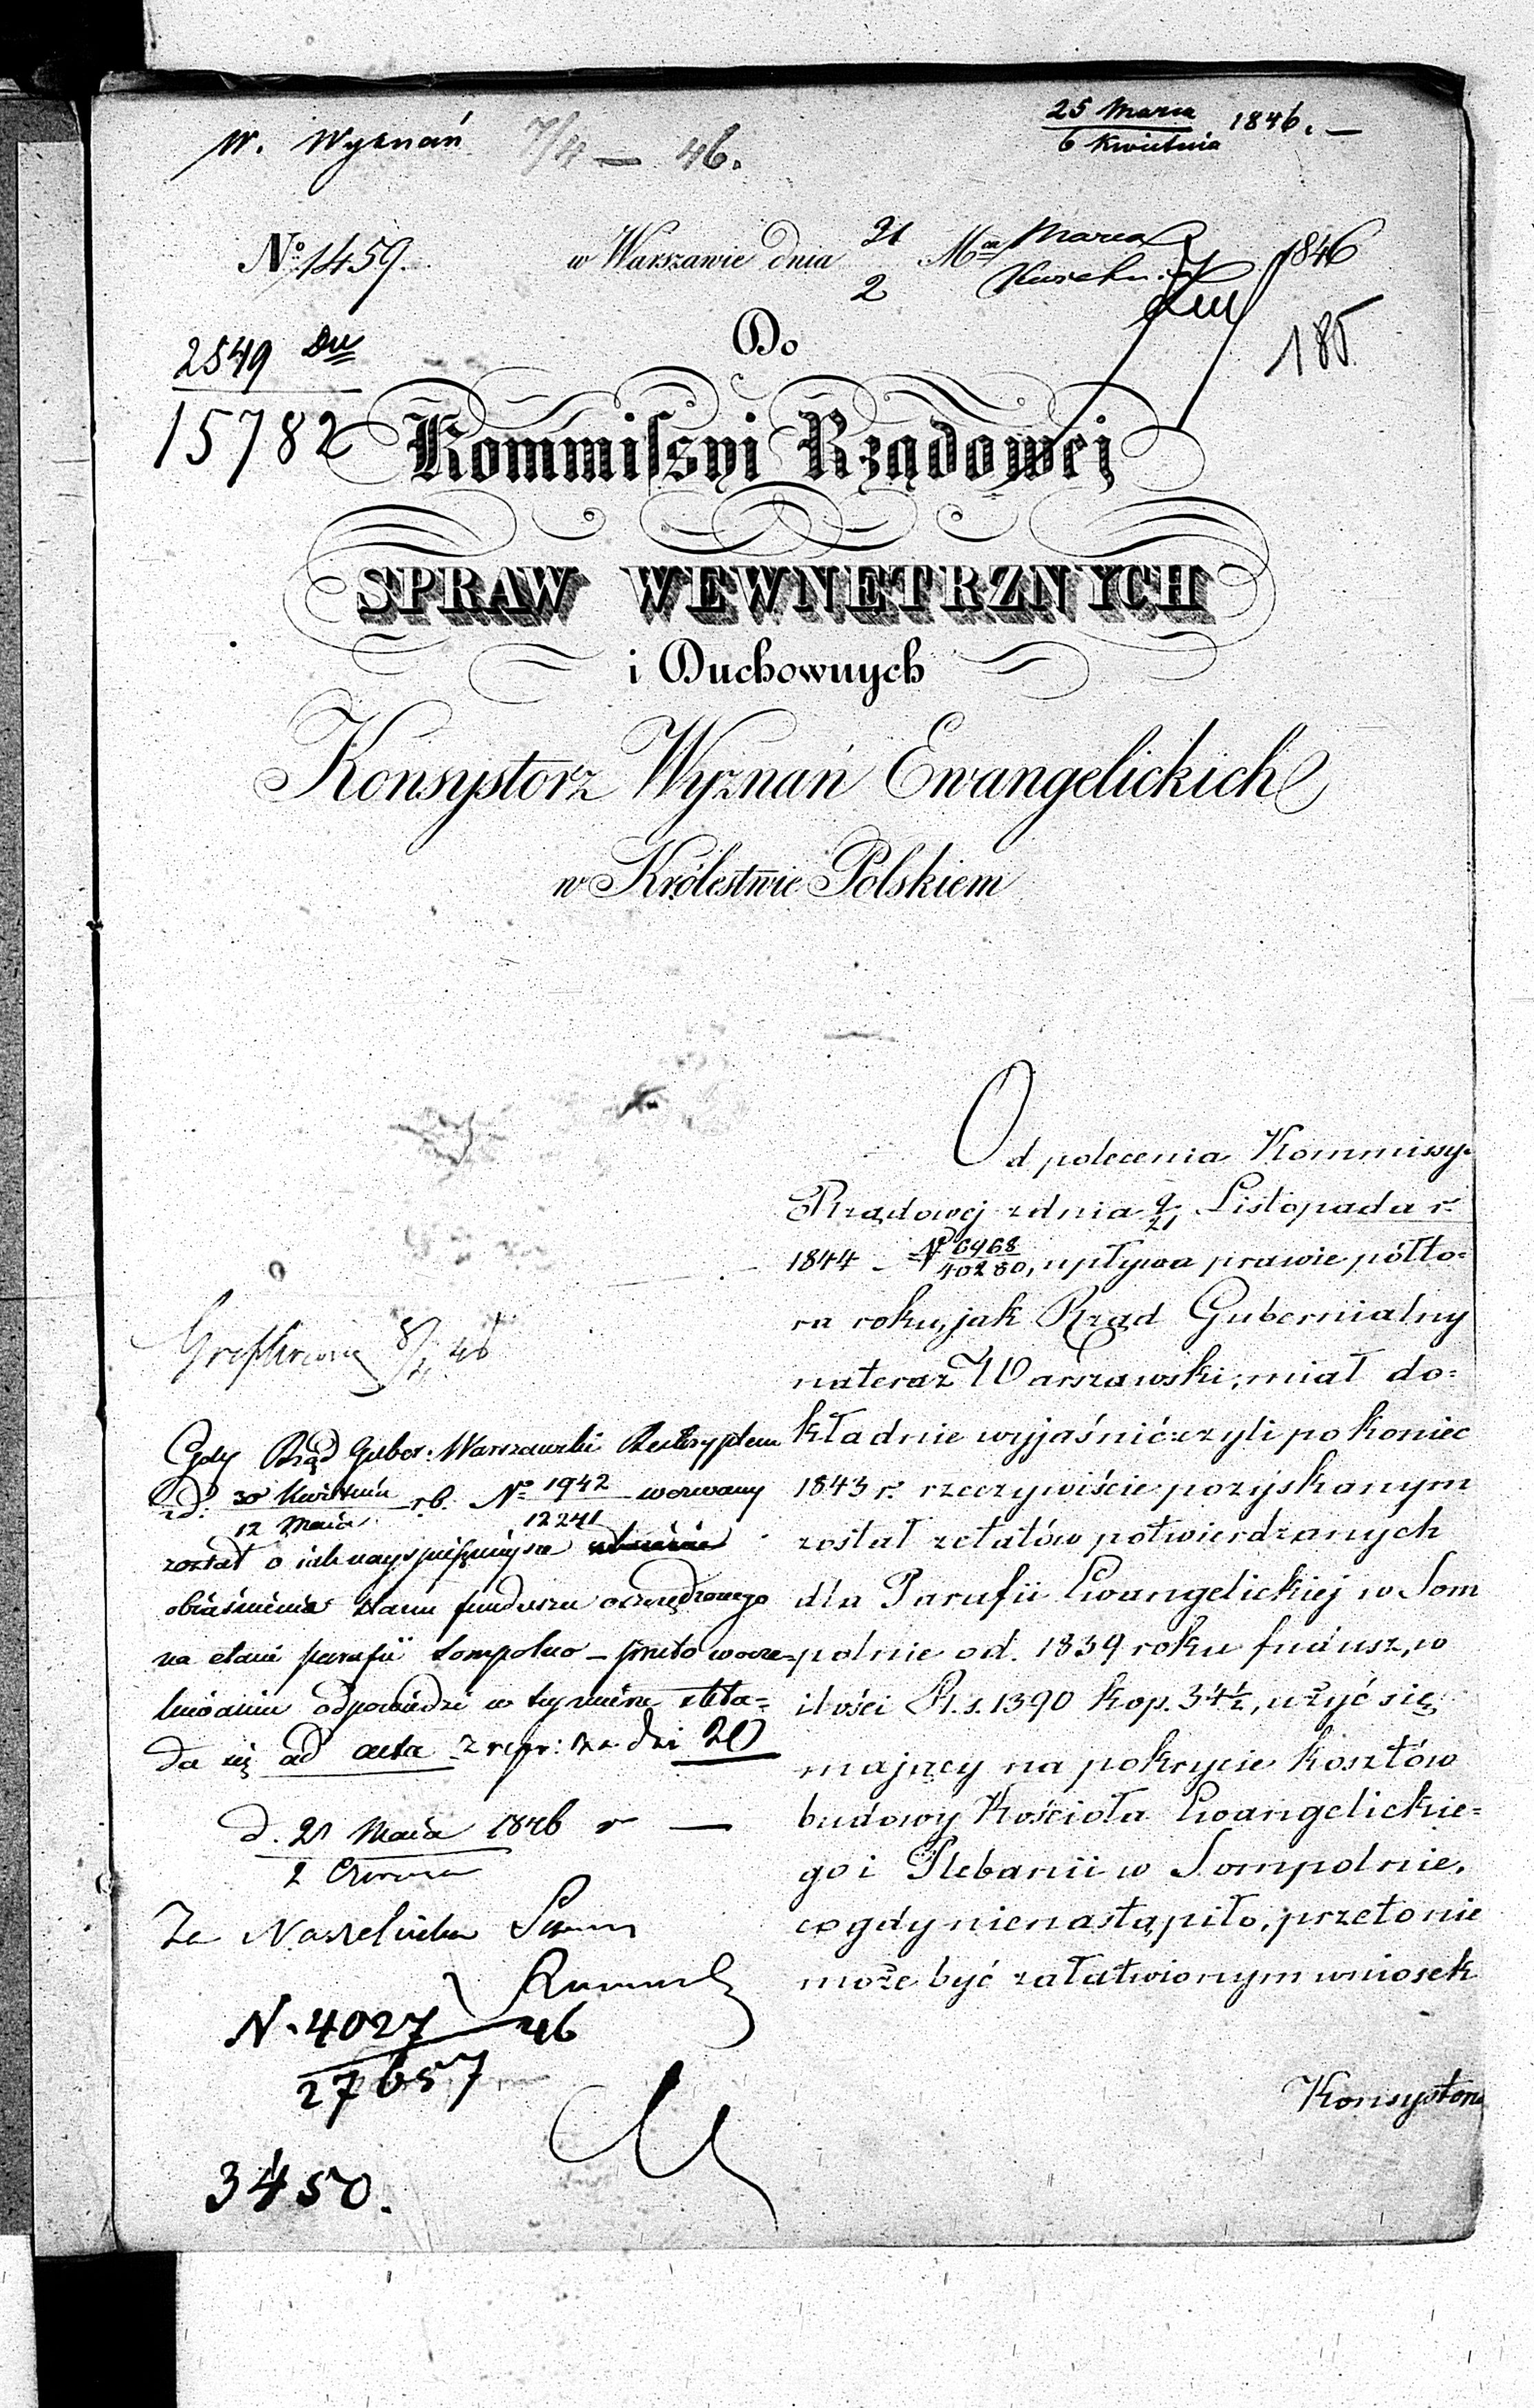 W. Wyznań 7/4 – 46.
25 Marca 1846. –
6 Kwietnia
No. 1459.
w Warszawie dnia 21 Mca Marca 1846
2 Kwietnia
185
2549 Du
15782
Do
Kommiſsyi Rządowej
SPRAW WEWNETRZNYCH
i Duchownych
Konsystorz Wyznań Ewangelickich
w Królestwie Polskiem
Od polecenia Kommissyi
Rządowej z dnia 9/21 Listopada r.
1844 – N 6968/40280, upływa prawie półto=
ra roku, jak Rząd Gubernialny
na teraz Warszawski, miał do=
kładnie wyjaśnić czyli po koniec
1843 r. rzeczywiście pozyskanym
został z etatów potwierdzanych
dla Parafii Ewangelickiej w Som
polnie od 1839 roku fudusz, w
ilości R. s. 1390 kop. 34½, użyć się
mający na pokrycie kosztów
budowy Kościoła Ewangelickie=
go i Plebanii w Sompolnie,
co gdy nie nastąpiło, przeto nie
może być załatwionym wniosek
Konsystorza
8/4 46
Gdy Rząd Guber: Warszawski Reskryptem
z d. 30 Kwietnia r.b. No 1942 wezwany
12 Maia 12241
został o iak nayspieszniejsze
obiaśnienie stanu funduszu oszczędzonego
na etacie parafii Sompolno – przeto w ocze=
kiwaniu odpowiedzi w tey mierze skła=
da się ad acta z repr: za dni 20
d. 21 Maia 1846 r –
2 Czerwca
Za Naczelnika
N. 4027 46
27657
3450.